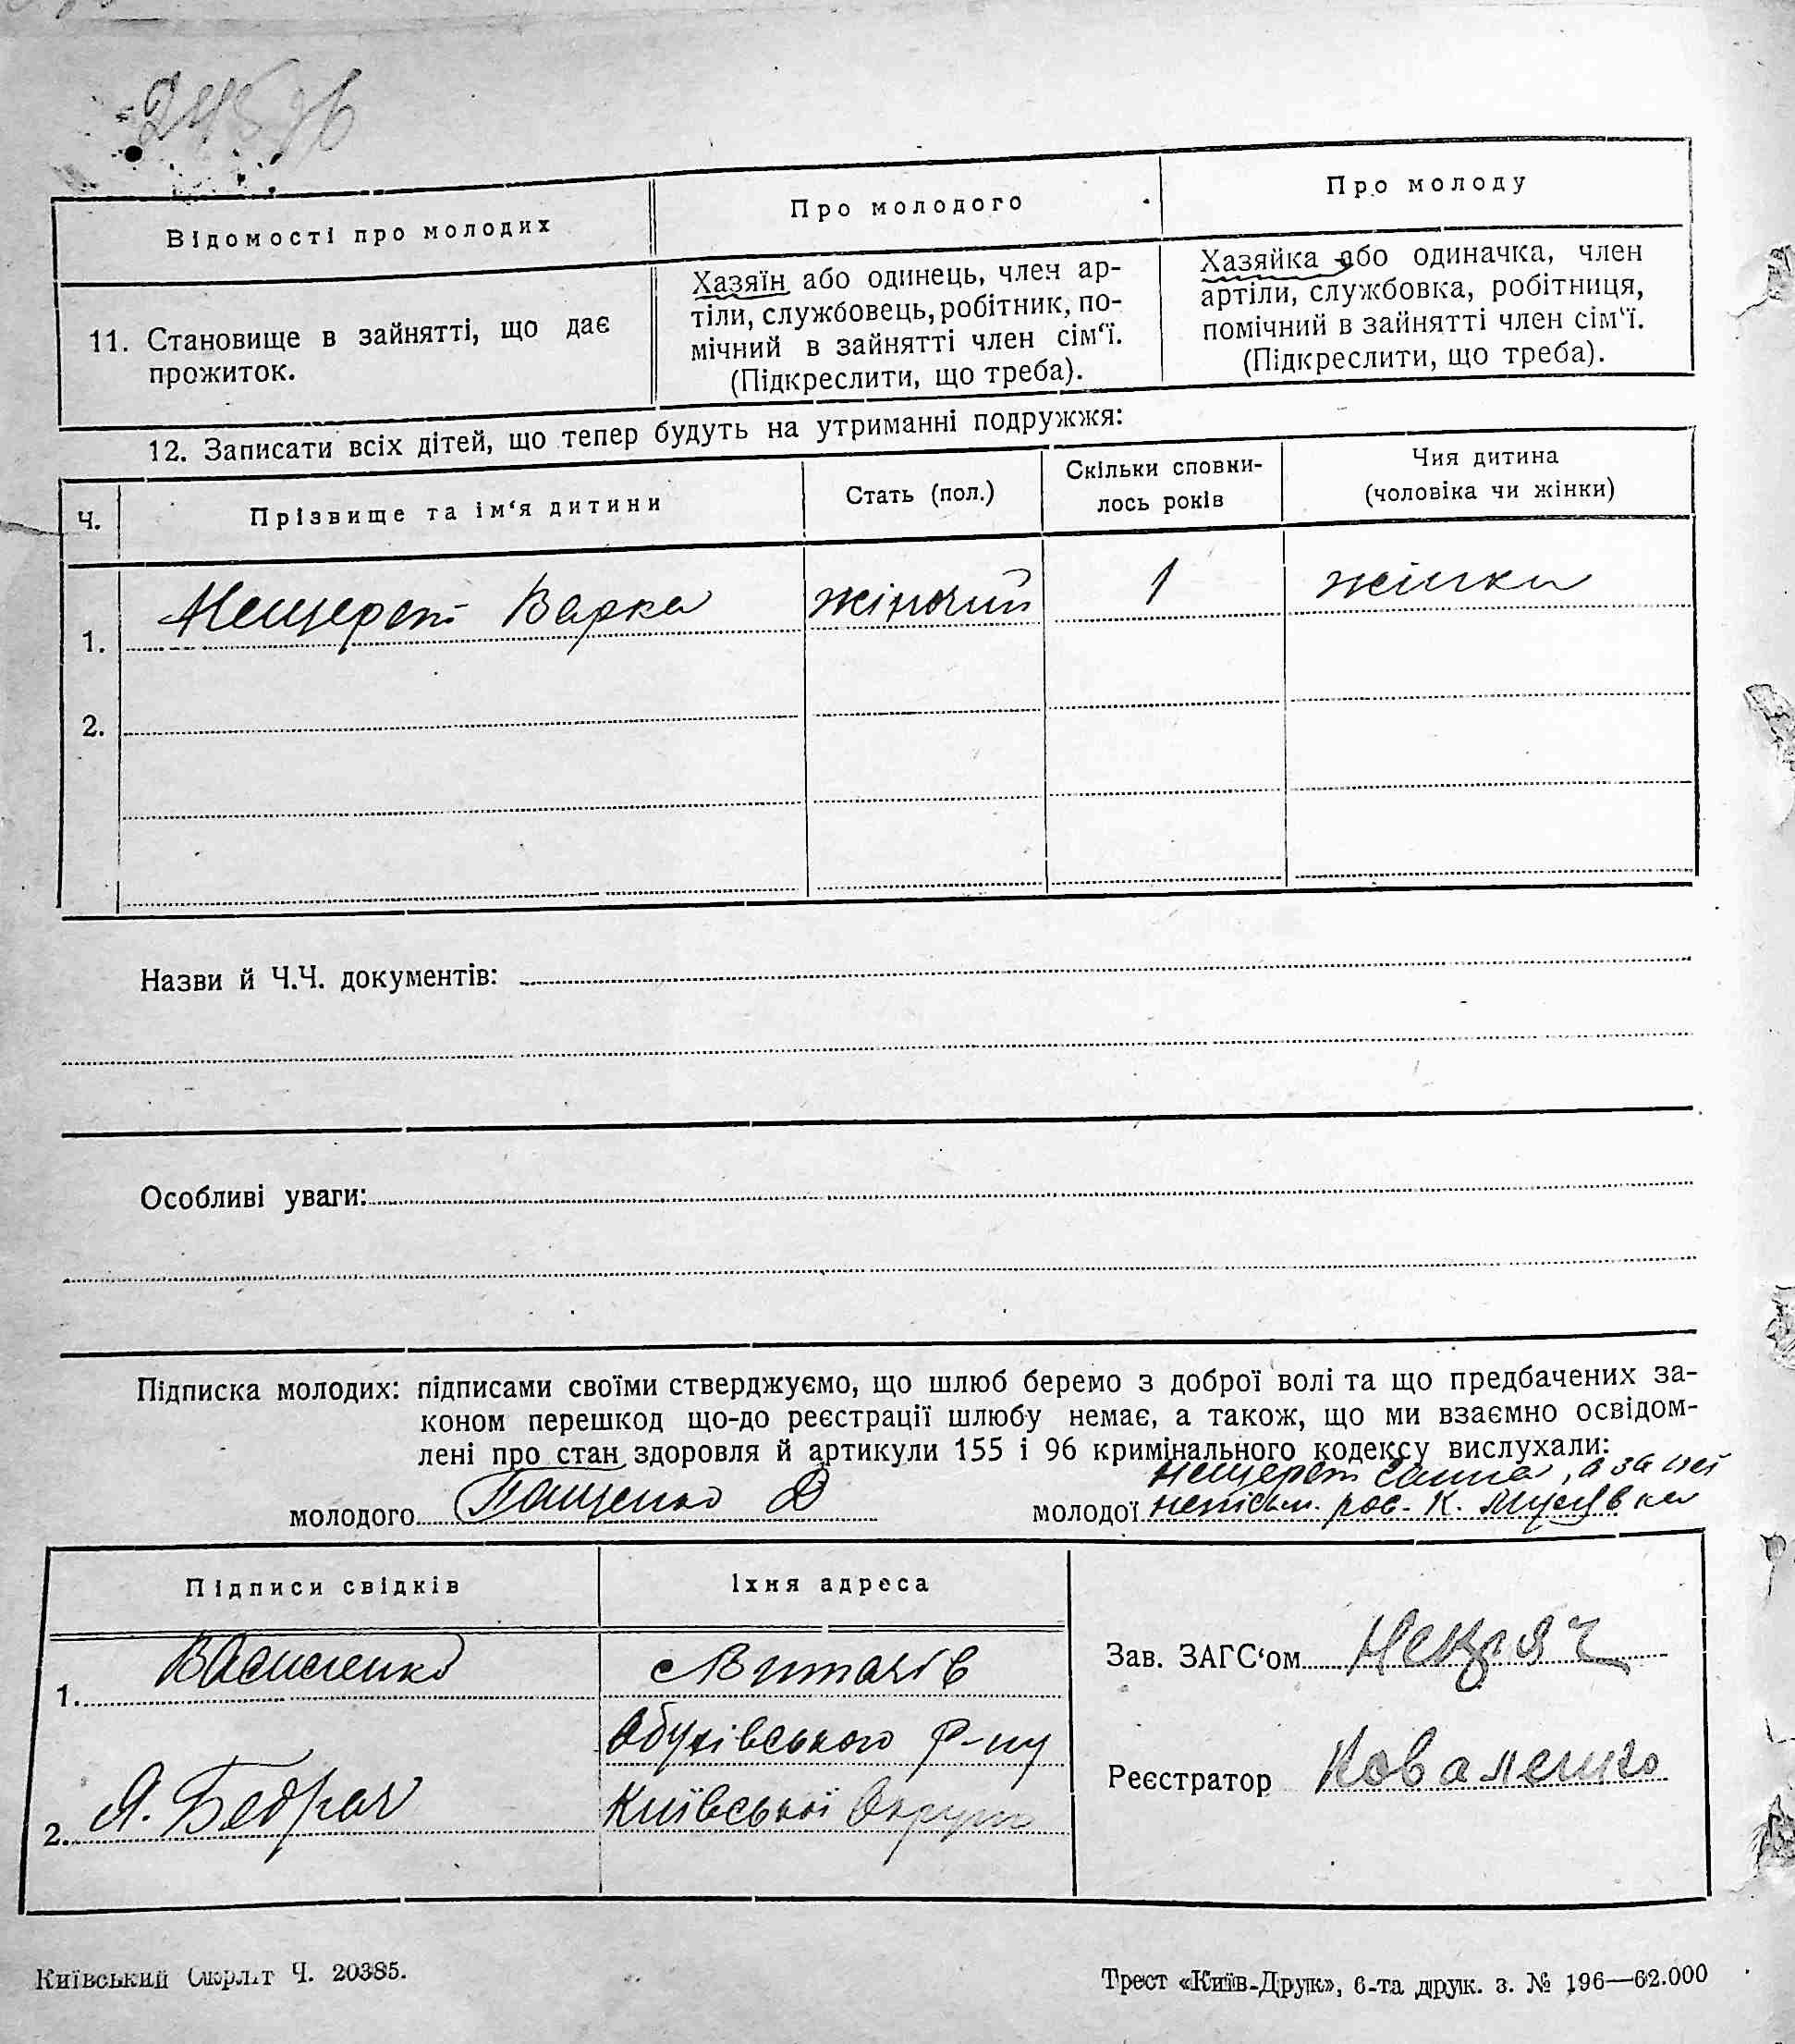 Відомості про молодих
Про молодого
Про молоду
11. Становище в зайнятті, що дає
прожиток.
Хазяїн або одинець, член ар-
тіли, службовець, робітник, по-
мічний в зайнятті член сім‘ї.
(Підкреслити, що треба).
Хазяйка або одиначка, член
артіли, службовка, робітниця,
помічний в зайнятті член сім‘ї.
(Підкреслити, що треба).
12. Записати всіх дітей, що тепер будуть на утриманні подружжя:
Ч.
Прізвище та ім‘я дитини
Стать (пол.)
Скільки сповни-
лось років
Чия дитина
(чоловіка чи жінки)
1. Нещерет Варка жіночий 1 жінки
2.
Назви й Ч.Ч. документів:
Особливі уваги:
Підписка молодих: підписами своїми стверджуємо, що шлюб беремо з доброї волі та що предбачених за-
коном перешкод що-до реєстрації шлюбу немає, а також, що ми взаємно освідом-
лені про стан здоровля й артикули 155 і 96 кримінального кодексу вислухали:
Нещерет , а за неї
молодого Пащенко В
молодої неписьм. рос. К.
Підписи свідків
Їхня адреса
1. Василенко
с Витачів
Обухівського Р-ну
2. Я. Бедрач
Київської Округи
Зав. ЗАГС‘ом
Реєстратор Коваленко
Київський Окрліт Ч. 20385.
Трест «Київ-Друк», 6-та друк. з. № 196—62.000